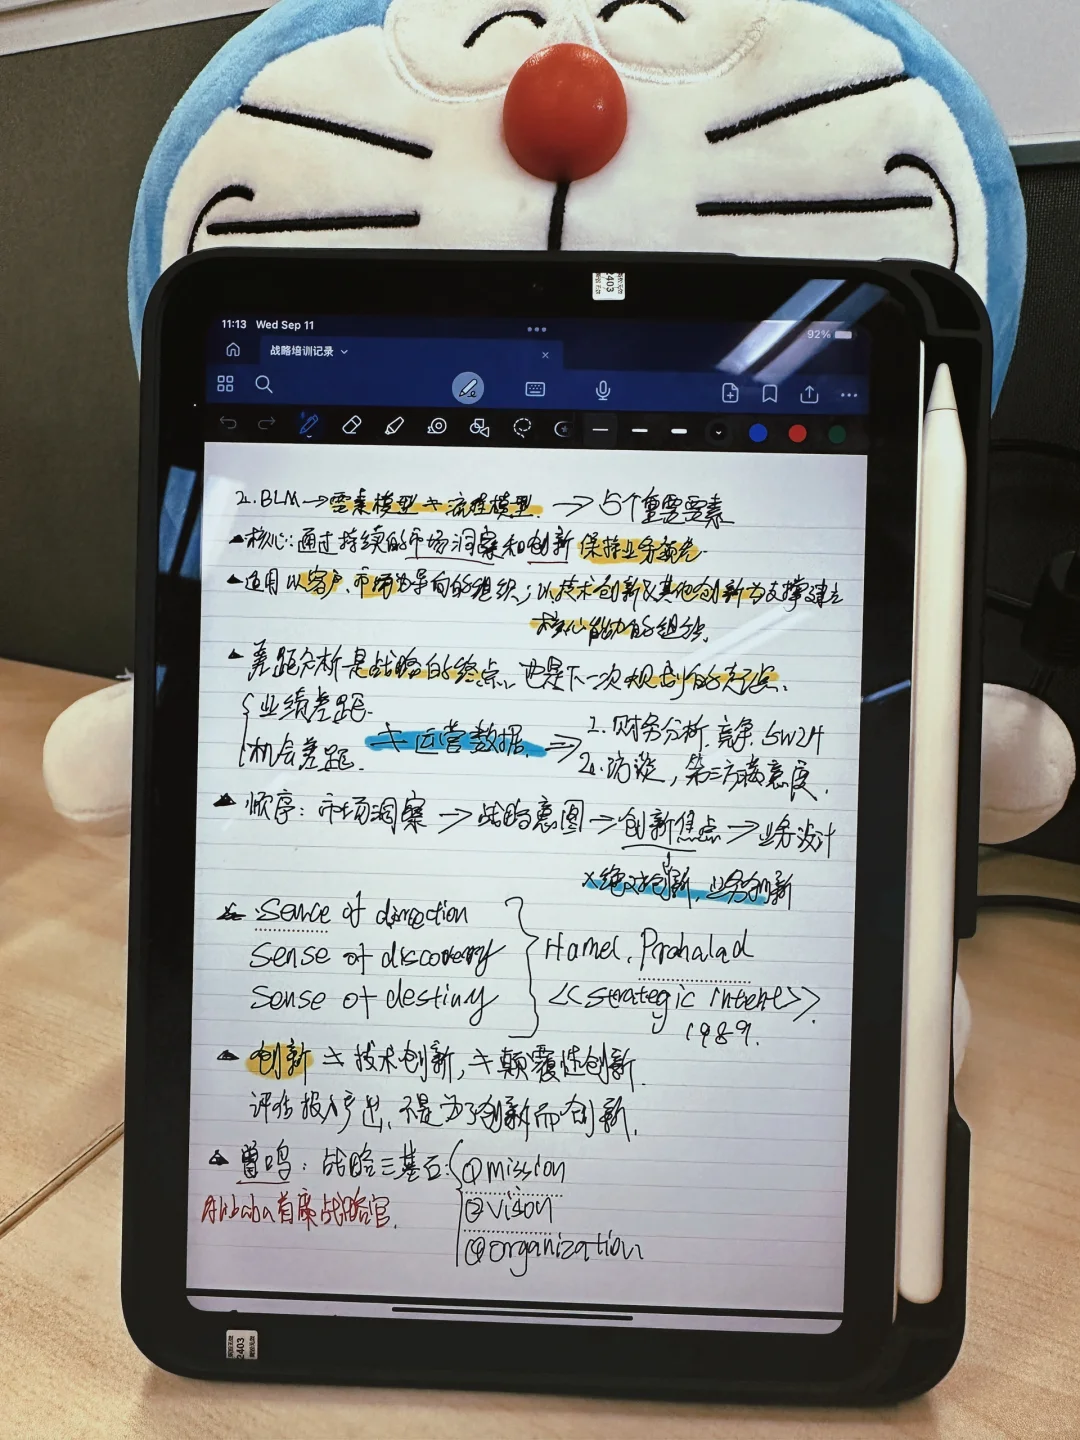 11:13 Wed Sep 11
92%
战略培训记录
2. BLM → 要素模型 + 流程模型. → 5个重要要素
核心: 通过持续的市场洞察和创新 保持业务领先.
适用以客户.市场为导向的组织; 以技术创新及其他创新为支撑建立
核心能力的组织.
差距分析是战略的终点, 也是下一次规划的起点.
业绩差距.
机会差距.
≠ 运营数据. ⇒
1. 财务分析. 竞争. 5W2H
2. 访谈, 第三方满意度.
顺序: 市场洞察 → 战略意图 → 创新焦点 → 业务设计
×绝对创新, 业务创新
sence of direction
sense of discovery
sense of destiny
Hamel, Prahalad
<<strategic intent>>.
1989.
创新 ≠ 技术创新, ≠ 颠覆性创新.
评估投入产出, 不是为了创新而创新.
曾鸣: 战略三基石:
Alibaba首席战略官.
①mission
②vision
③organization
2403
2403